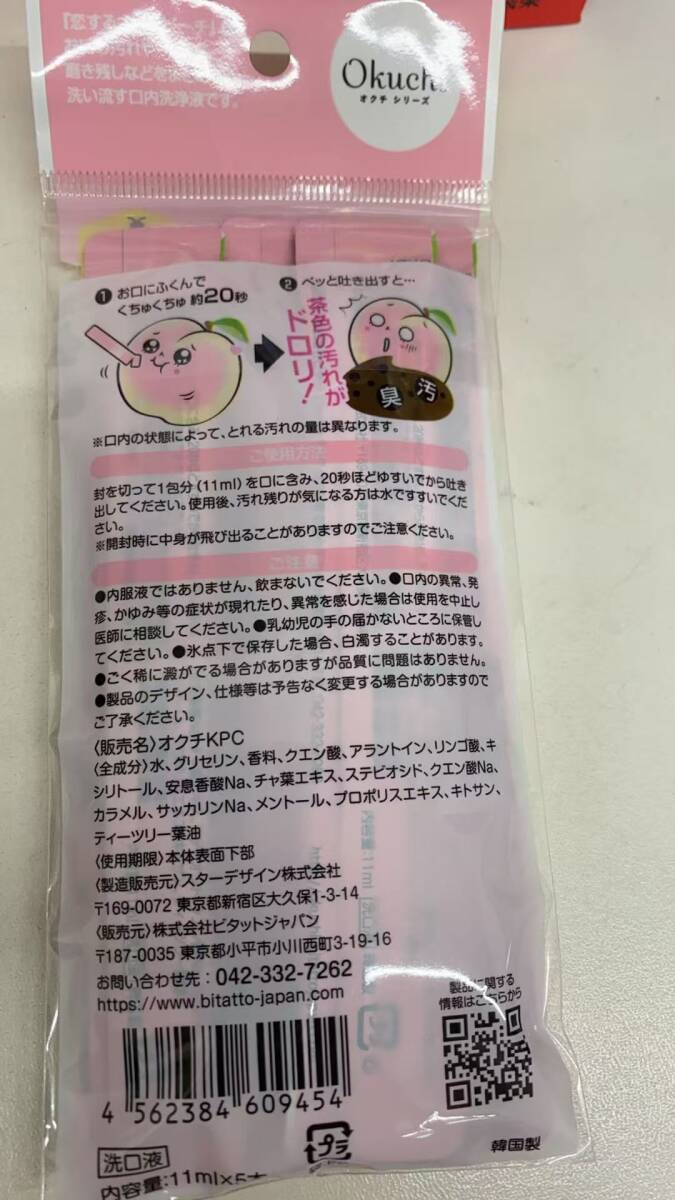 『恋する
Okuch
オクチ シリーズ
磨き残しなどを
洗い流す口内洗浄液です。
① お口にふくんで
くちゅくちゅ 約20秒
② ペッと吐き出すと…
茶色の汚れが
ドロリ！
臭
汚
※口内の状態によって、とれる汚れの量は異なります。
ご使用方法
封を切って1包分（11ml）を口に含み、20秒ほどゆすいでから吐き
出してください。使用後、汚れ残りが気になる方は水ですすいでくだ
さい。
※開封時に中身が飛び出ることがありますのでご注意ください。
ご注意
●内服液ではありません、飲まないでください。●口内の異常、発
疹、かゆみ等の症状が現れたり、異常を感じた場合は使用を中止し
医師に相談してください。●乳幼児の手の届かないところに保管し
てください。●氷点下で保存した場合、白濁することがあります。
●ごく稀に澱がでる場合がありますが品質に問題はありません。
●製品のデザイン、仕様等は予告なく変更する場合がありますので
ご了承ください。
〈販売名〉オクチKPC
〈全成分〉水、グリセリン、香料、クエン酸、アラントイン、リンゴ酸、キ
シリトール、安息香酸Na、チャ葉エキス、ステビオシド、クエン酸Na、
カラメル、サッカリンNa、メントール、プロポリスエキス、キトサン、
ティーツリー葉油
〈使用期限〉本体表面下部
〈製造販売元〉スターデザイン株式会社
〒169-0072 東京都新宿区大久保1-3-14
〈販売元〉株式会社ビタットジャパン
〒187-0035 東京都小平市小川西町3-19-16
お問い合わせ先：042-332-7262
https://www.bitatto-japan.com
製品に関する
情報はこちらから
4 562384 609454
プラ
韓国製
洗口液
内容量:11ml×5本